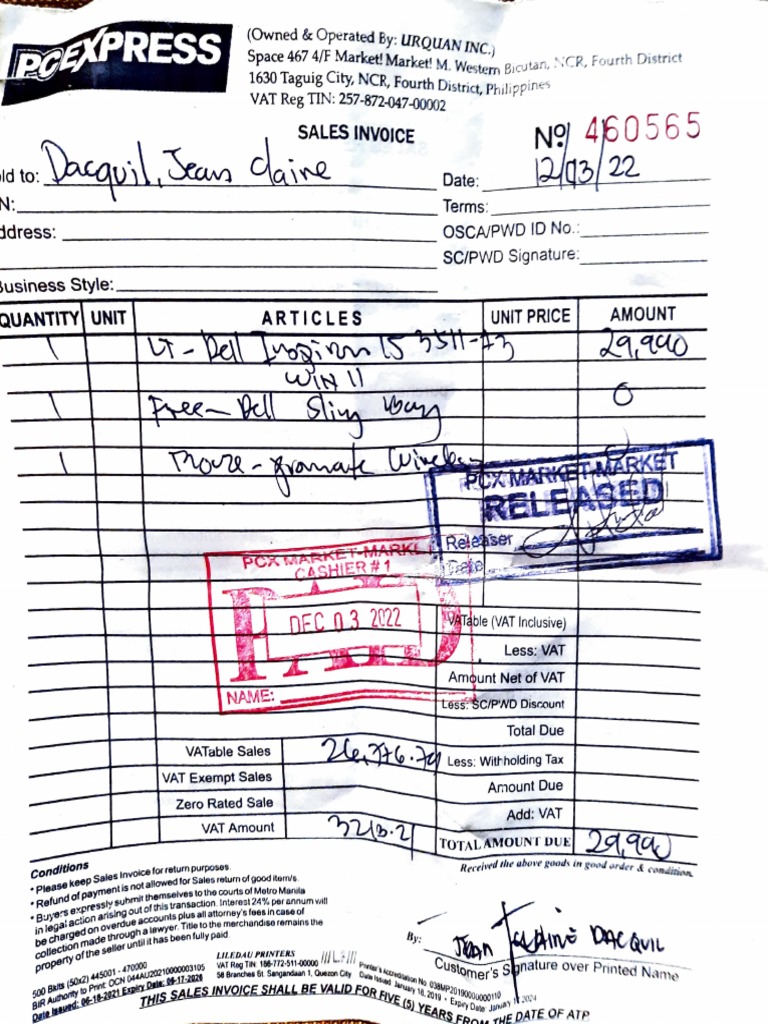 PCEXPRESS
(Owned & Operated By: URQUAN INC.)
Space 467 4/F Market! Market! M. Western Bicutan, NCR, Fourth District
1630 Taguig City, NCR, Fourth District, Philippines
VAT Reg TIN: 257-872-047-00002
SALES INVOICE
Nº 460565
ld to: Dacquil, Jean Claine
Date: 12/03/22
N:
Terms:
ddress:
OSCA/PWD ID No.:
SC/PWD Signature:
Business Style:
QUANTITY UNIT ARTICLES UNIT PRICE AMOUNT
1 LT - Dell Inspiron 15 3511-73 29,990
WIN 11
1 Free - Dell Sling Bag 0
1 Mouse - promate Wireless
PCX MARKET-MARKET
RELEASED
Releaser
Date
PCX MARKET-MARKET
CASHIER #1
PAID
DEC 03 2022
NAME:
VATable (VAT Inclusive)
Less: VAT
Amount Net of VAT
Less: SC/PWD Discount
Total Due
VATable Sales 26,776.79 Less: Withholding Tax
VAT Exempt Sales Amount Due
Zero Rated Sale Add: VAT
VAT Amount 3213.21 TOTAL AMOUNT DUE 29,990
Conditions
• Please keep Sales Invoice for return purposes.
• Refund of payment is not allowed for Sales return of good item/s.
• Buyers expressly submit themselves to the courts of Metro Manila
in legal action arising out of this transaction. Interest 24% per annum will
be charged on overdue accounts plus all attorney's fees in case of
collection made through a lawyer. Title to the merchandise remains the
property of the seller until it has been fully paid.
Received the above goods in good order & condition.
By: JEAN CLAINE DACQUIL
Customer's Signature over Printed Name
500 Bklts (50x2) 445001 - 470000
BIR Authority to Print: OCN 044AU20210000003105
Date Issued: 06-18-2021 Expiry Date: 06-17-2026
LILEDAU PRINTERS
VAT Reg TIN: 186-772-511-00000
58 Branches St. Sangandaan 1, Quezon City
Printer's Accreditation No. 038MP20190000000110
Date Issued: January 18, 2019 • Expiry Date: January 2024
THIS SALES INVOICE SHALL BE VALID FOR FIVE (5) YEARS FROM THE DATE OF ATP